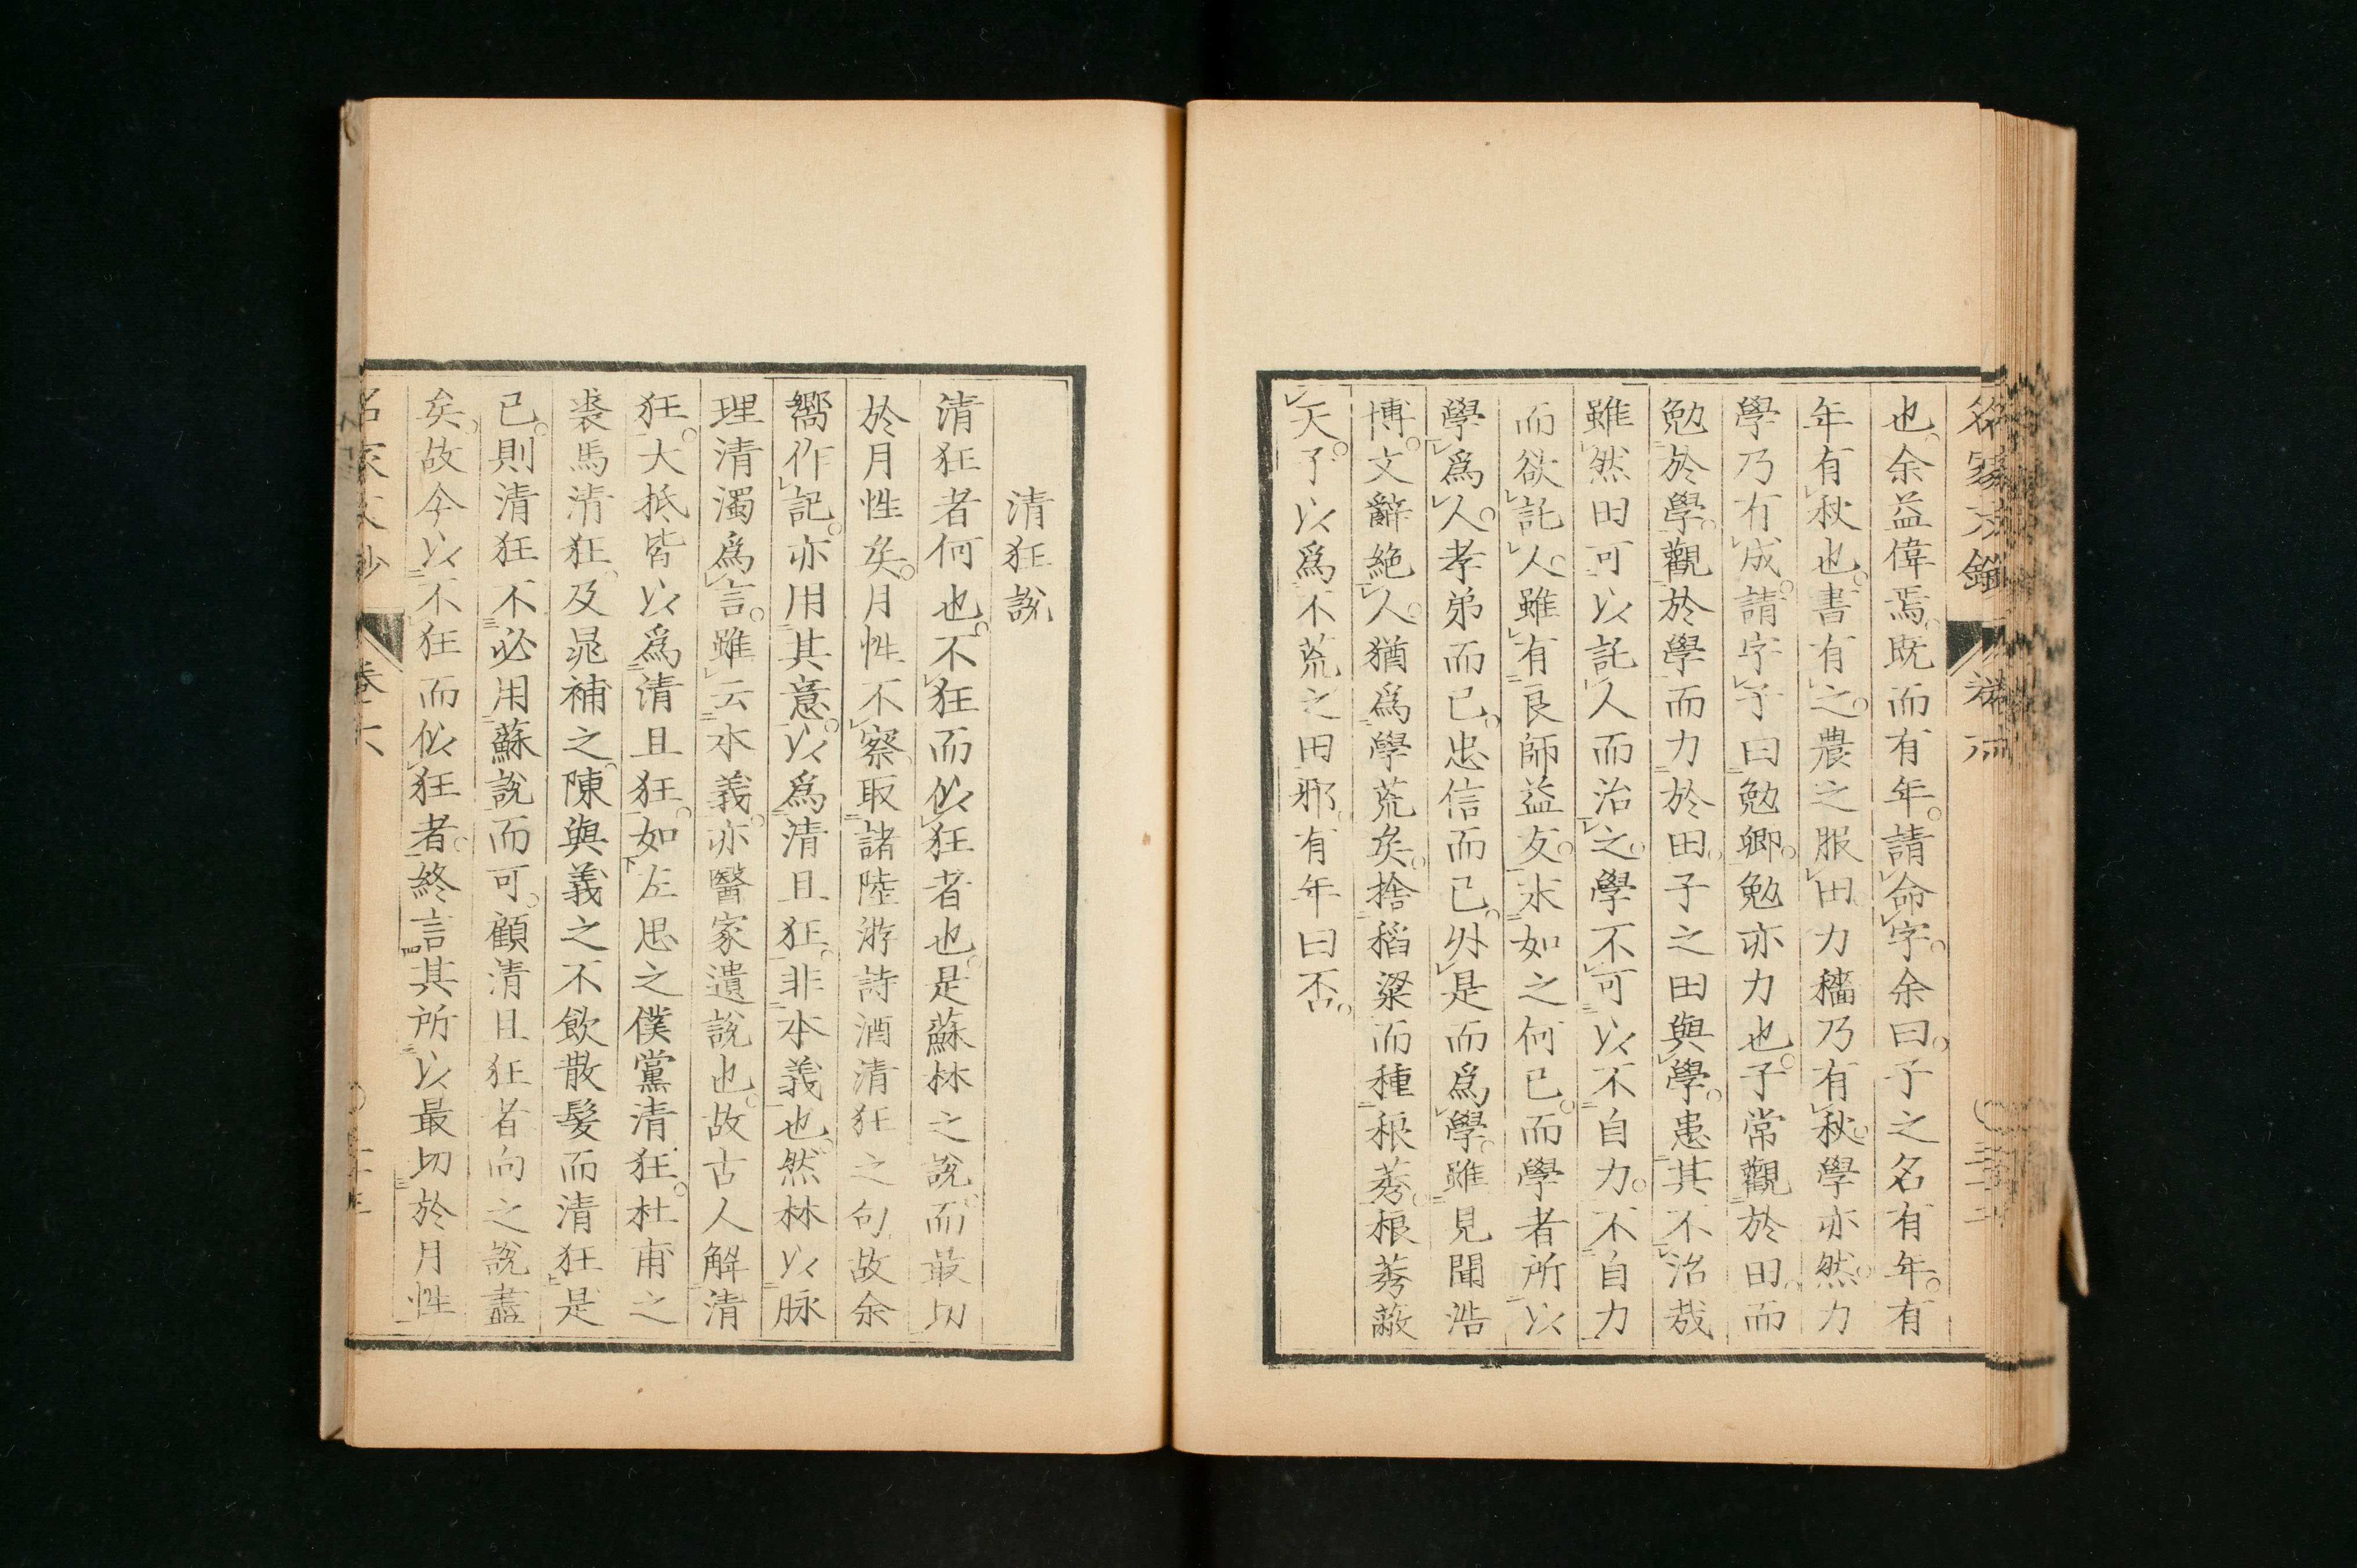 也。余益偉焉。既而有年。請命字。余曰。子之名有年。有
年有秋也。書有之。農之服田力穡乃有秋。學亦然。力
學乃有成。請字。予曰勉卿。勉亦力也。子常觀於田。而
勉於學。觀於學而力於田。子之田與學。患其不治哉
雖然田可以託人而治之。學不可以不自力。不自力
而欲託人。雖有良師益友。末如之何已。而學者所以
學爲人。孝弟而已。忠信而已。外是而爲學。雖見聞浩
博。文辭絶人。猶爲學荒矣。捨稻粱而種稂莠。稂莠蔽
天。了以爲不荒之田邪。有年曰否。
清狂說
清狂者何也。不狂而似狂者也。是蘇林之說。而最切
於月性矣。月性不察。取諸陸游詩酒清狂之句。故余
嚮作記。亦用其意。以爲清且狂。非本義也。然林以脉
理清濁爲言。雖云本義。亦醫家遺說也。故古人解清
狂。大抵皆以爲清且狂。如左思之僕黨清狂。杜甫之
裘馬清狂。及晁補之陳與義之不飲散髮而清狂是
已。則清狂不必用蘇說而可。顧清且狂者向之說盡
矣。故今以不狂而似狂者。終言其所以最切於月性
名家文鈔 卷六